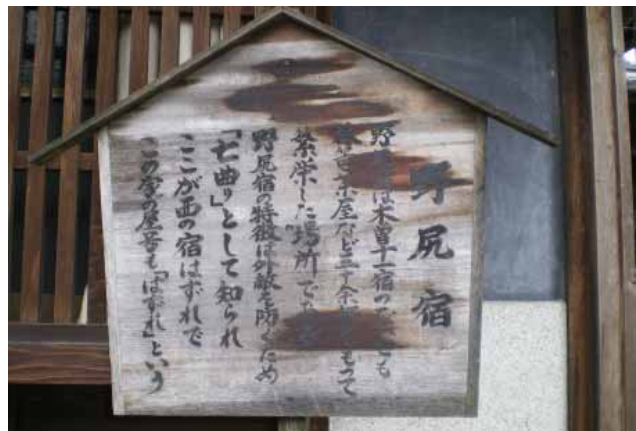 野尻宿
野尻宿は木曽十一宿の中でも
茶屋など三十余軒もって
繁栄した場所である
野尻宿の特徴は外敵を防ぐため
「七曲り」として知られ
ここが西の宿はずれで
この家の屋号も「はずれ」という